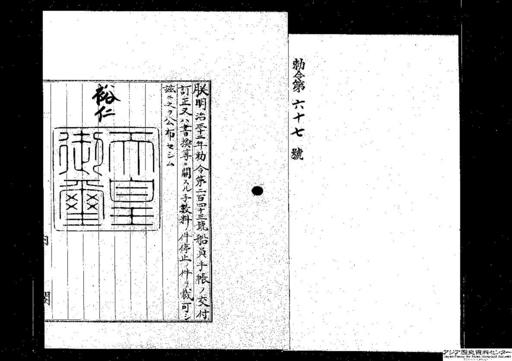 勅令第六十七號
朕明治三十二年勅令第二百四十三號船員手帳ノ交付
訂正又ハ書換等ニ關スル手數料ノ件停止ノ件ヲ裁可シ
茲ニ之ヲ公布セシム
裕仁
天皇
御璽
内閣
アジア歴史資料センター